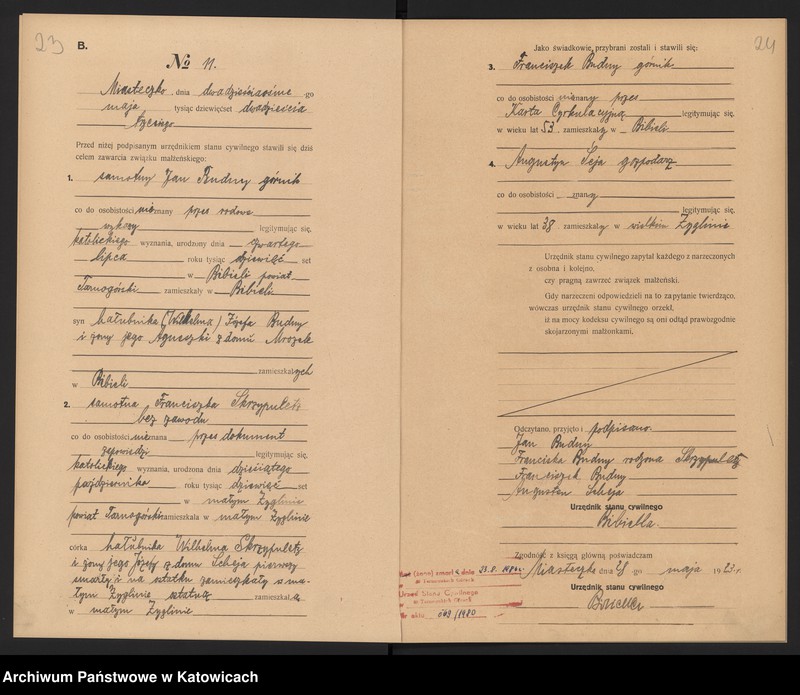 23
B.
№ 11.
Miasteczko, dnia dwadzieściaósme go
maja tysiąc dziewięćset dwadzieścia
trzeciego
Przed niżej podpisanym urzędnikiem stanu cywilnego stawili się dziś
celem zawarcia związku małżeńskiego:
1. samotny Jan Budny górnik
co do osobistości nieznany przez rodowe
wykazy legitymując się,
katolickiego wyznania, urodzony dnia czwartego
lipca roku tysiąc dziewięć set
w Bibieli powiat
Tarnogórski zamieszkały w Bibieli
syn chałubnika (Wilhelma) Józefa Budny
i żony jego Agnieszki z domu Mrozek
zamieszkałych
w Bibieli
2. samotna Franciszka Skrzypuletz
bez zawodu
co do osobistości nieznana przez dokument
zapowiedzi legitymując się,
katolickiego wyznania, urodzona dnia dziesiątego
października roku tysiąc dziewięć set
w małym Zyglinie
powiat Tarnogórski zamieszkała w małym Zyglinie
córka chałubnika Wilhelma Skrzypuletz
i żony jego Józefy z domu Scheja pierwszy
zmarły i na ostatku zamieszkały w ma-
łym Zyglinie ostatnia zamieszkała
w małym Zyglinie
24
Jako świadkowie przybrani zostali i stawili się:
3. Franciszek Budny górnik
co do osobistości nieznany przez
Karta Cyrkulacyjną legitymując się,
w wieku lat 53, zamieszkały w Bibieli
4. Augustyn Seja gospodarz
co do osobistości znany
legitymując się,
w wieku lat 38, zamieszkały w wielkim Zyglinie
Urzędnik stanu cywilnego zapytał każdego z narzeczonych
z osobna i kolejno,
czy pragną zawrzeć związek małżeński.
Gdy narzeczeni odpowiedzieli na to zapytanie twierdząco,
wówczas urzędnik stanu cywilnego orzekł,
iż na mocy kodeksu cywilnego są oni odtąd prawozgodnie
skojarzonymi małżonkami.
Odczytano, przyjęto i podpisano.
Jan Budny
Franciska Budny rodzona Skrzypuletz
Franciszek Budny
Augustyn Scheja
Urzędnik stanu cywilnego
Bibiella.
Zgodność z księgą główną poświadczam
Miasteczko dnia 28 go maja 1923 r.
Urzędnik stanu cywilnego
Bibiella
(żona) zmarł dnia
Urząd Stanu Cywilnego
Nr aktu /1980
Archiwum Państwowe w Katowicach